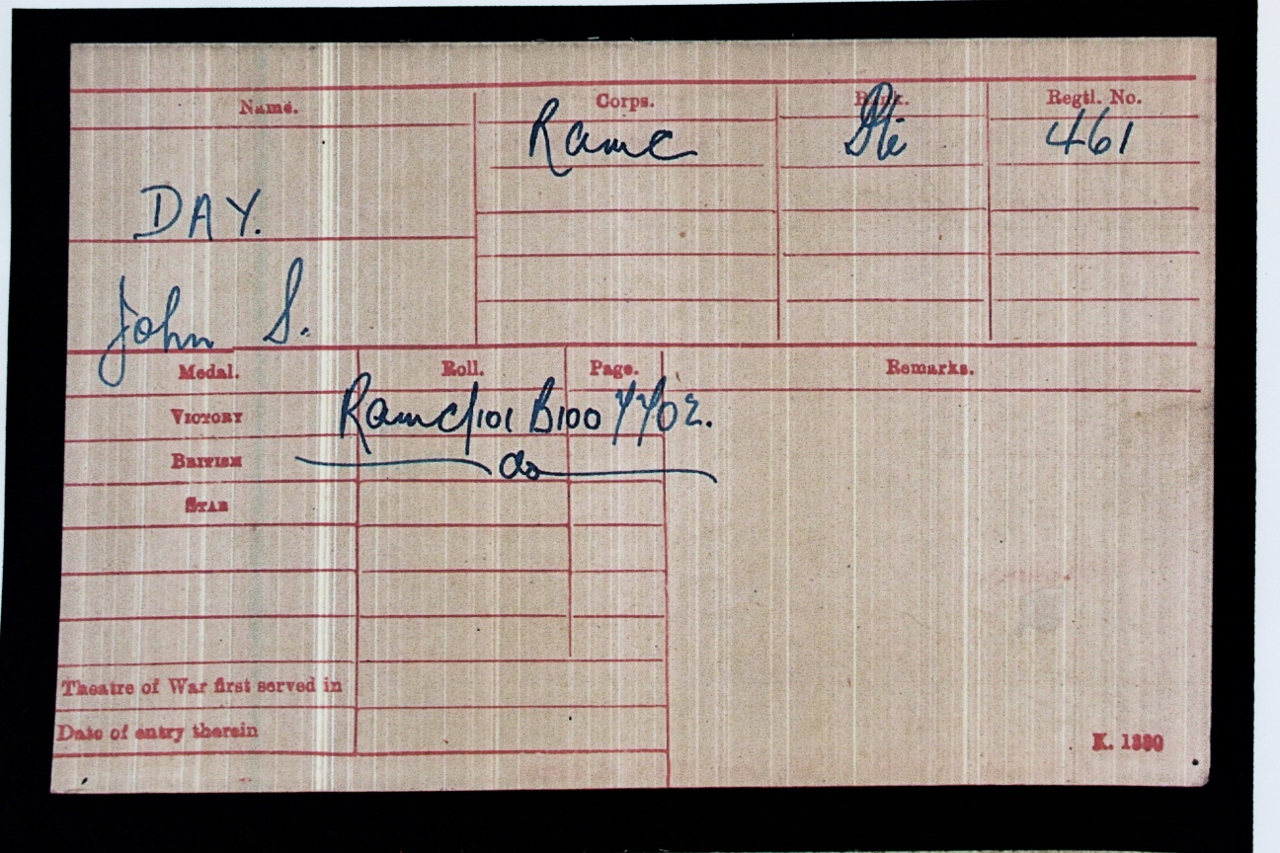 Name. Corps. Rank. Regtl. No.
Ramc Pte 461
DAY.
John S.
Medal. Roll. Page. Remarks.
VICTORY Ramc/101 B100 7702.
BRITISH do
STAR
Theatre of War first served in
Date of entry therein
K. 1380